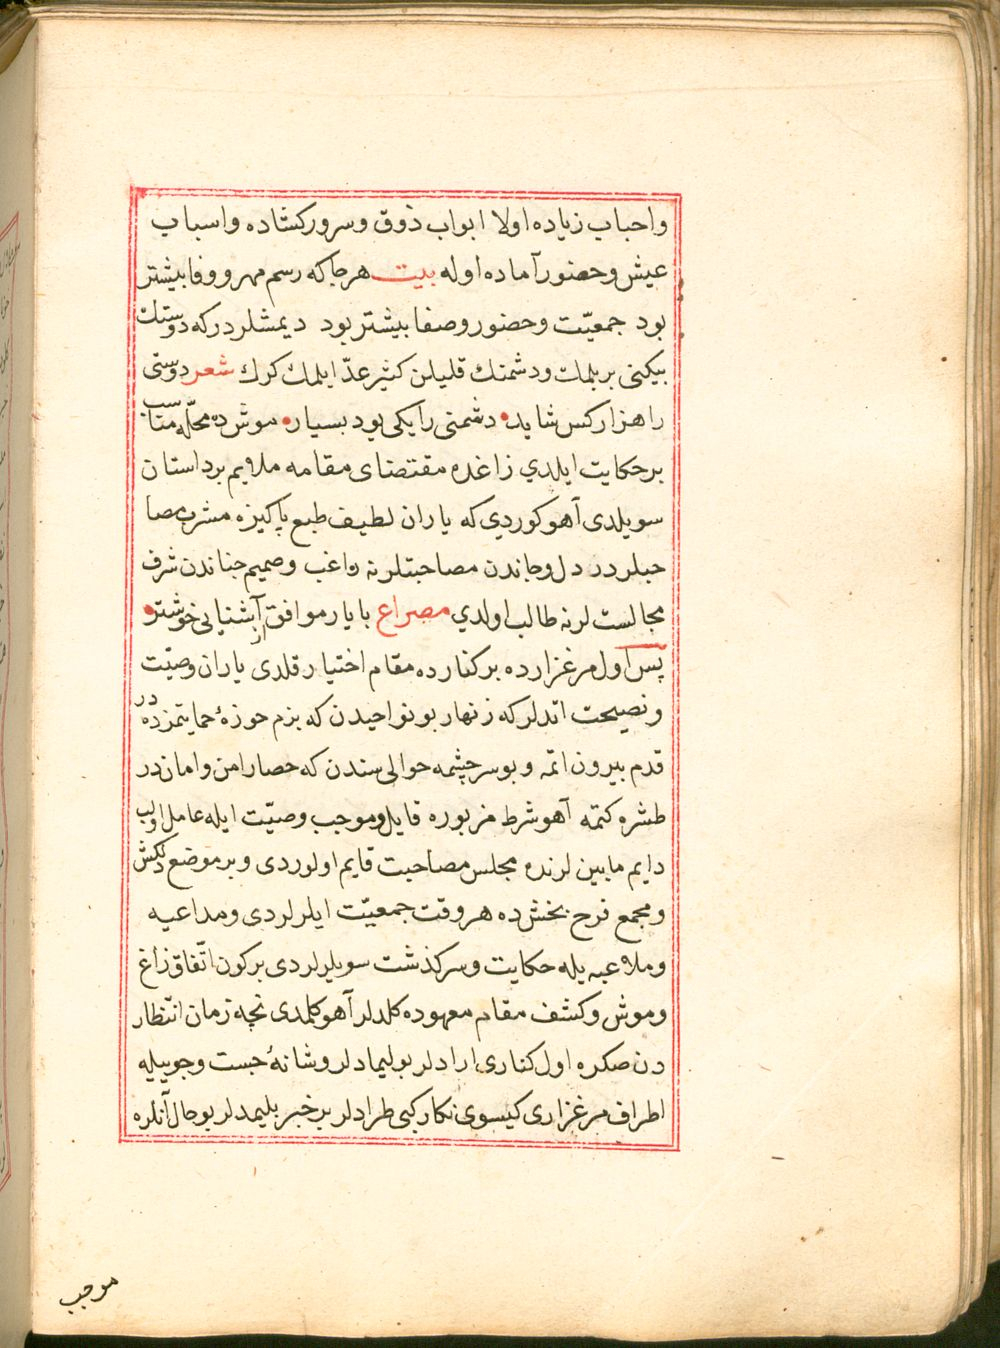 واحباب زیاده اولا ابواب ذوق وسرور کشاده واسباب
عیش وحضور آماده اوله بیت هرجاکه رسم مهر ووفا بیشتر
بود جمعیّت وحضور وصفا بیشتر بود دیمشلردرکه دوستك
بیکنی بر بلمك ودشمنك قلیلن کثیر عدّ ایلمك کرك شعر دوستی
را هزار کس شاید دشمنی را یکی بود بسیار موش ده محلّه مناسب
بر حکایت ایلدي زاغده مقتضای مقامه ملایم بر داستان
سویلدی آهو کوردی که یاران لطیف طبع پاکیزه مشرب مصا
حبلردر دل وجاندن مصاحبتلرنه راغب وصمیم جناندن شرف
مجالست لرنه طالب اولدي مصراع با یار موافق آشنایی خوشتر
پس اول مرغزارده بر کنارده مقام اختیار قلدی یاران وصیّت
ونصیحت اتدلرکه زنهار بو نواحیدن که بزم حوزۀ حمایتمزده در
قدم بیرون اتمه وبو سرچشمه حوالی سندن که حصار امن واماندر
طشره کتمه آهو شرط مزبوره قایل وموجب وصیّت ایله عامل اولب
دایم مابین لرنده مجلس مصاحبت قایم اولوردی وبر موضع دلکش
ومجمع فرح بخش ده هر وقت جمعیّت ایلرلردی ومداعبه
وملاعبه یله حکایت وسرکذشت سویلرلردی برکون اتّفاق زاغ
وموش وکشف مقام معهوده کلدلر آهو کلمدی نجه زمان انتظار
دن صکره اول کناری ارادلر بولیمادلر وشانۀ جست وجوییله
اطراف مرغزاری کیسوی نکار کبی طرادلر بر خبر بلیمدلر بو حال آنلره
موجب